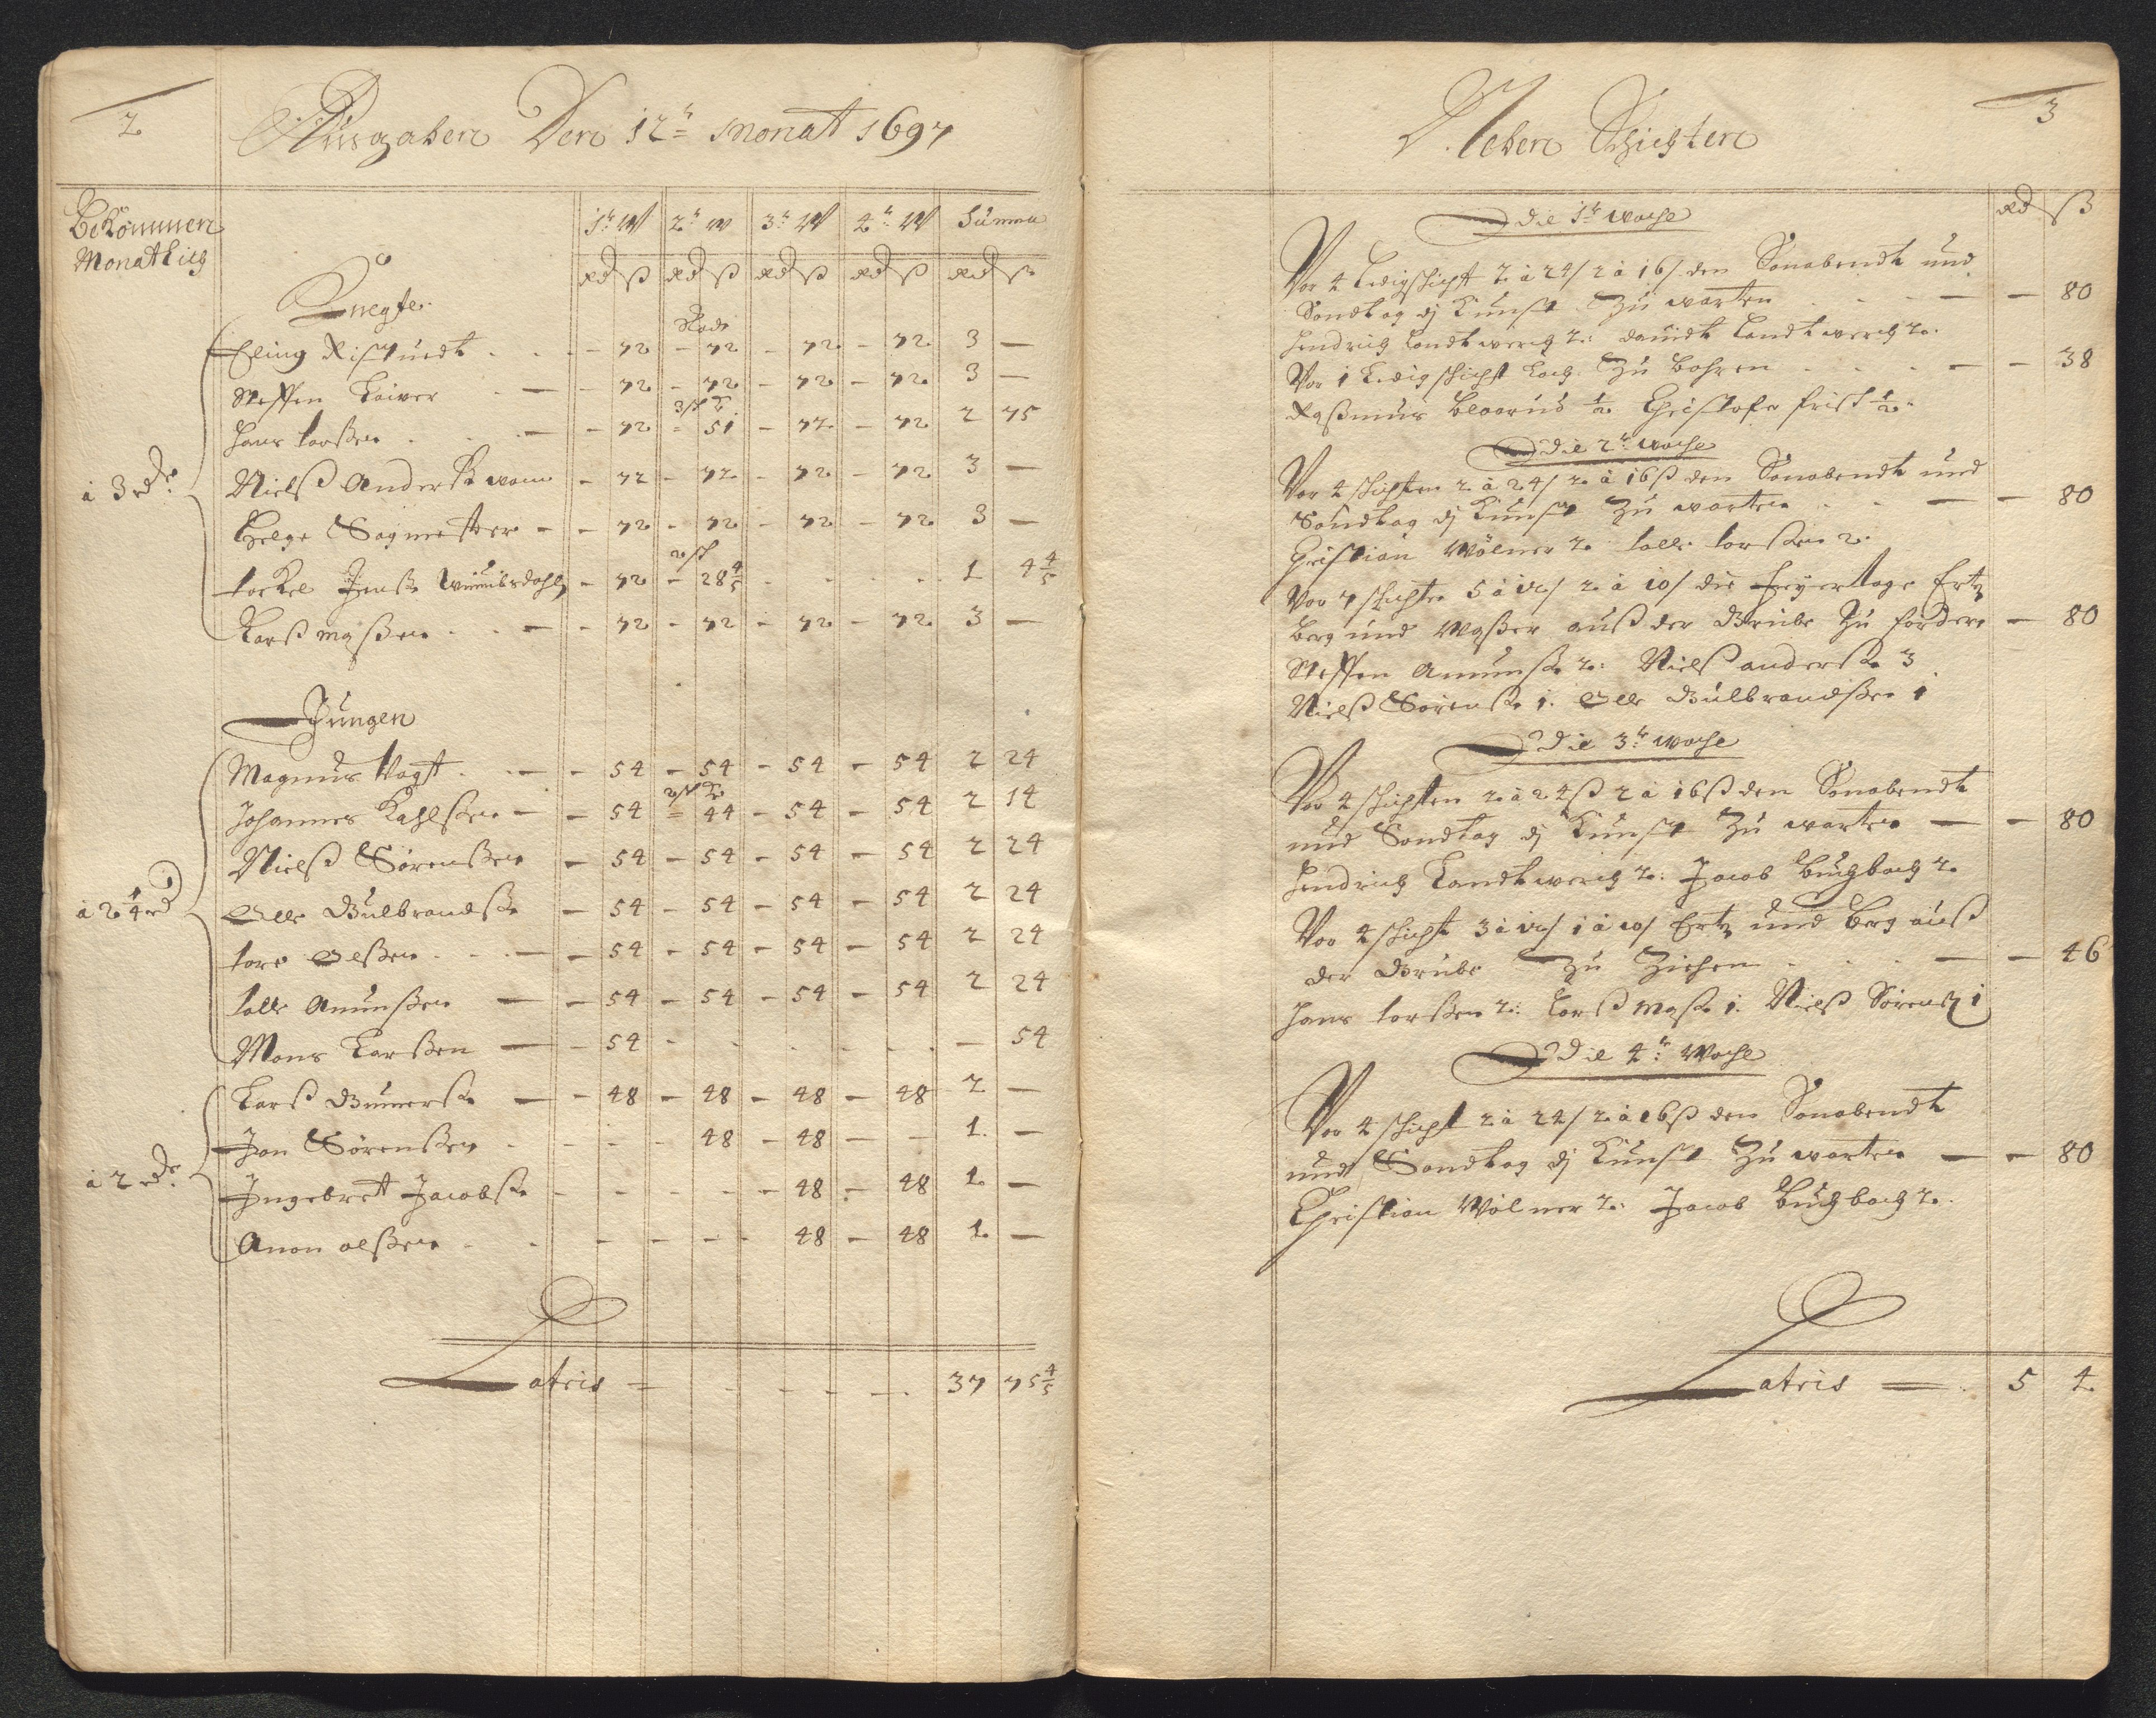 2
Ausgaben Den 12te Monat 1697
Bekommen
Monatlich
1te W 2te W 3te W 4te W Summa
Rd ß Rd ß Rd ß Rd ß Rd ß
Knegte
Eling - 72 - 72 - 72 - 72 3 -
Steffen - 72 - 72 - 72 - 72 3 -
Hans Larßen - 72 - 51 - 72 - 72 2 75
à 3 rdr
Nielß - 72 - 72 - 72 - 72 3 -
Helge Sagmester - 72 - 72 - 72 - 72 3 -
torkel Jenß - 72 - 28 4/5 1 4 4/5
Larß Maßen - 72 - 72 - 72 - 72 3 -
Jungen
Magnus Vogt - 54 - 54 - 54 - 54 2 24
Johannes Kahlßen - 54 - 44 - 54 - 54 2 14
Nielß Sörenßen - 54 - 54 - 54 - 54 2 24
à 2 1/4 rd
Olle Gulbrandß - 54 - 54 - 54 - 54 2 24
tore Olßen - 54 - 54 - 54 - 54 2 24
talle Amunßen - 54 - 54 - 54 - 54 2 24
Mons Larßen - 54 - 54
Larß Gunerß - 48 - 48 - 48 - 48 2 -
Jon Sörenßen - 48 - 48 - - 1 -
à 2 rdr
Ingebret Jacobß - 48 - 48 1 -
Anon olßen - 48 - 48 1 -
Latris 37 75 4/5
3
Neben Schichten
Rd ß
Die 1te woche
Vor 4 Ledigschicht 2 à 24/ 2 à 16/ den Sonabendt und
Sondtag dj Kunst Zu warten - 80
Hendrich Landtwerch 2: Davidt Landtwerch 2.
Vor 1 Ledigschicht Loch Zu bohren - 38
Raßmus 1/2 Christofer frist 1/2.
Die 2te woche
Vor 4 schichten 2 à 24/ 2 à 16ß den Sonabendt und
Sondtag dj Kunst Zu warten - 80
Christian Wölner 2 talle torßen 2.
Vor 7 schichte 5 à 12/ 2 à 10/ die feyertage Ertz
berg und Waßer auß der Grube Zu fordern - 80
Steffen Amunß 2: Nielß anderß 3
Nielß Sörenß 1. Olle Gulbrandßen 1
Die 3te woche
Vor 4 schichten 2 à 24ß 2 à 16ß den Sonabendt
und Sondtag dj Kunst Zu warten - 80
Hendrich Landtwerch 2: Jacob Buchbach 2
Vor 4 schicht 3 à 12/ 1 à 10/ Ertz und berg auß
der Grube Zu Ziehen - 46
Hans Larßen 2: Larß Maß 1. Nielß Sörenß 1
Die 4te Woche
Vor 4 schicht 2 à 24/ 2 à 16ß den Sonabendt
und Sondtag dj Kunst Zu warten - 80
Christian Wölner 2: Jacob Buchbach 2.
Latris 5 4